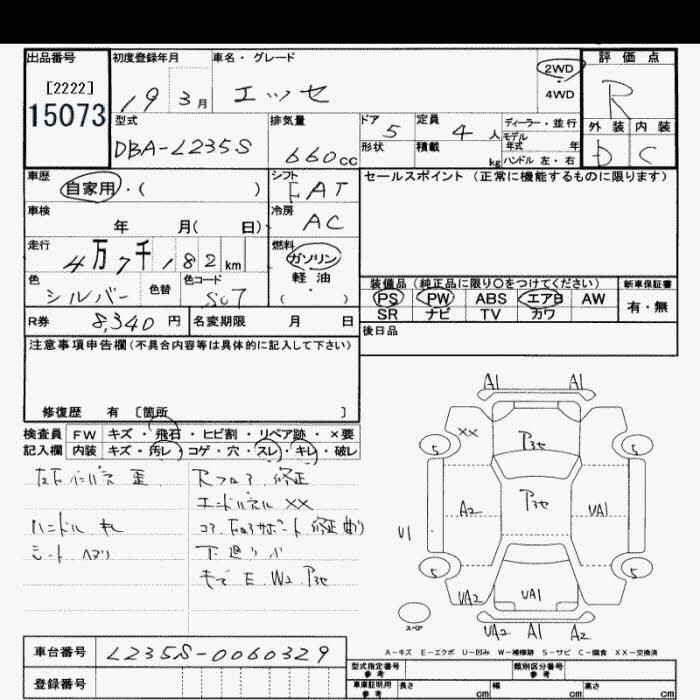 出品番号
[2222]
15073
初度登録年月
19 3月
車名・グレード
エッセ
2WD
4WD
評価点
R
外装 内装
D C
型式
DBA-L235S
排気量
660cc
ドア 5
形状
定員 4人
積載 kg
ディーラー・並行
モデル年式 年
ハンドル 左・右
車歴
自家用・( )
シフト
FAT
セールスポイント(正常に機能するものに限ります)
車検
年 月( 日)
冷房
AC
走行
4万7千182km
燃料
ガソリン
軽油
( )
色
シルバー
色替
色コード
S07
装備品(純正品に限り○をつけてください)
PS PW ABS エアB AW
SR ナビ TV カワ
新車保証書
有・無
R券 8,340円
名変期限 月 日
後日品
注意事項申告欄(不具合内容等は具体的に記入して下さい)
修復歴 有 〔箇所 〕
検査員 FW キズ・飛石・ヒビ割・リペア跡・×要
記入欄 内装 キズ・汚レ・コゲ・穴・スレ・キレ・破レ
Rフロア 修正
エンドパネル XX
ハンドル キレ
シート ヘタリ
下廻り小
E W2
A1 A1
XX
5 5
A2
UA1
U1
5 5
UA2
UA1
スペア
UA2 A1 A2
A-キズ E-エクボ U-凹み W-補修跡 S-サビ C-腐食 XX-交換済
車台番号 L235S-0060329
登録番号
型式指定番号
参考
類別区分番号
参考
車庫証明用
参考
長さ cm 幅 cm 高さ cm